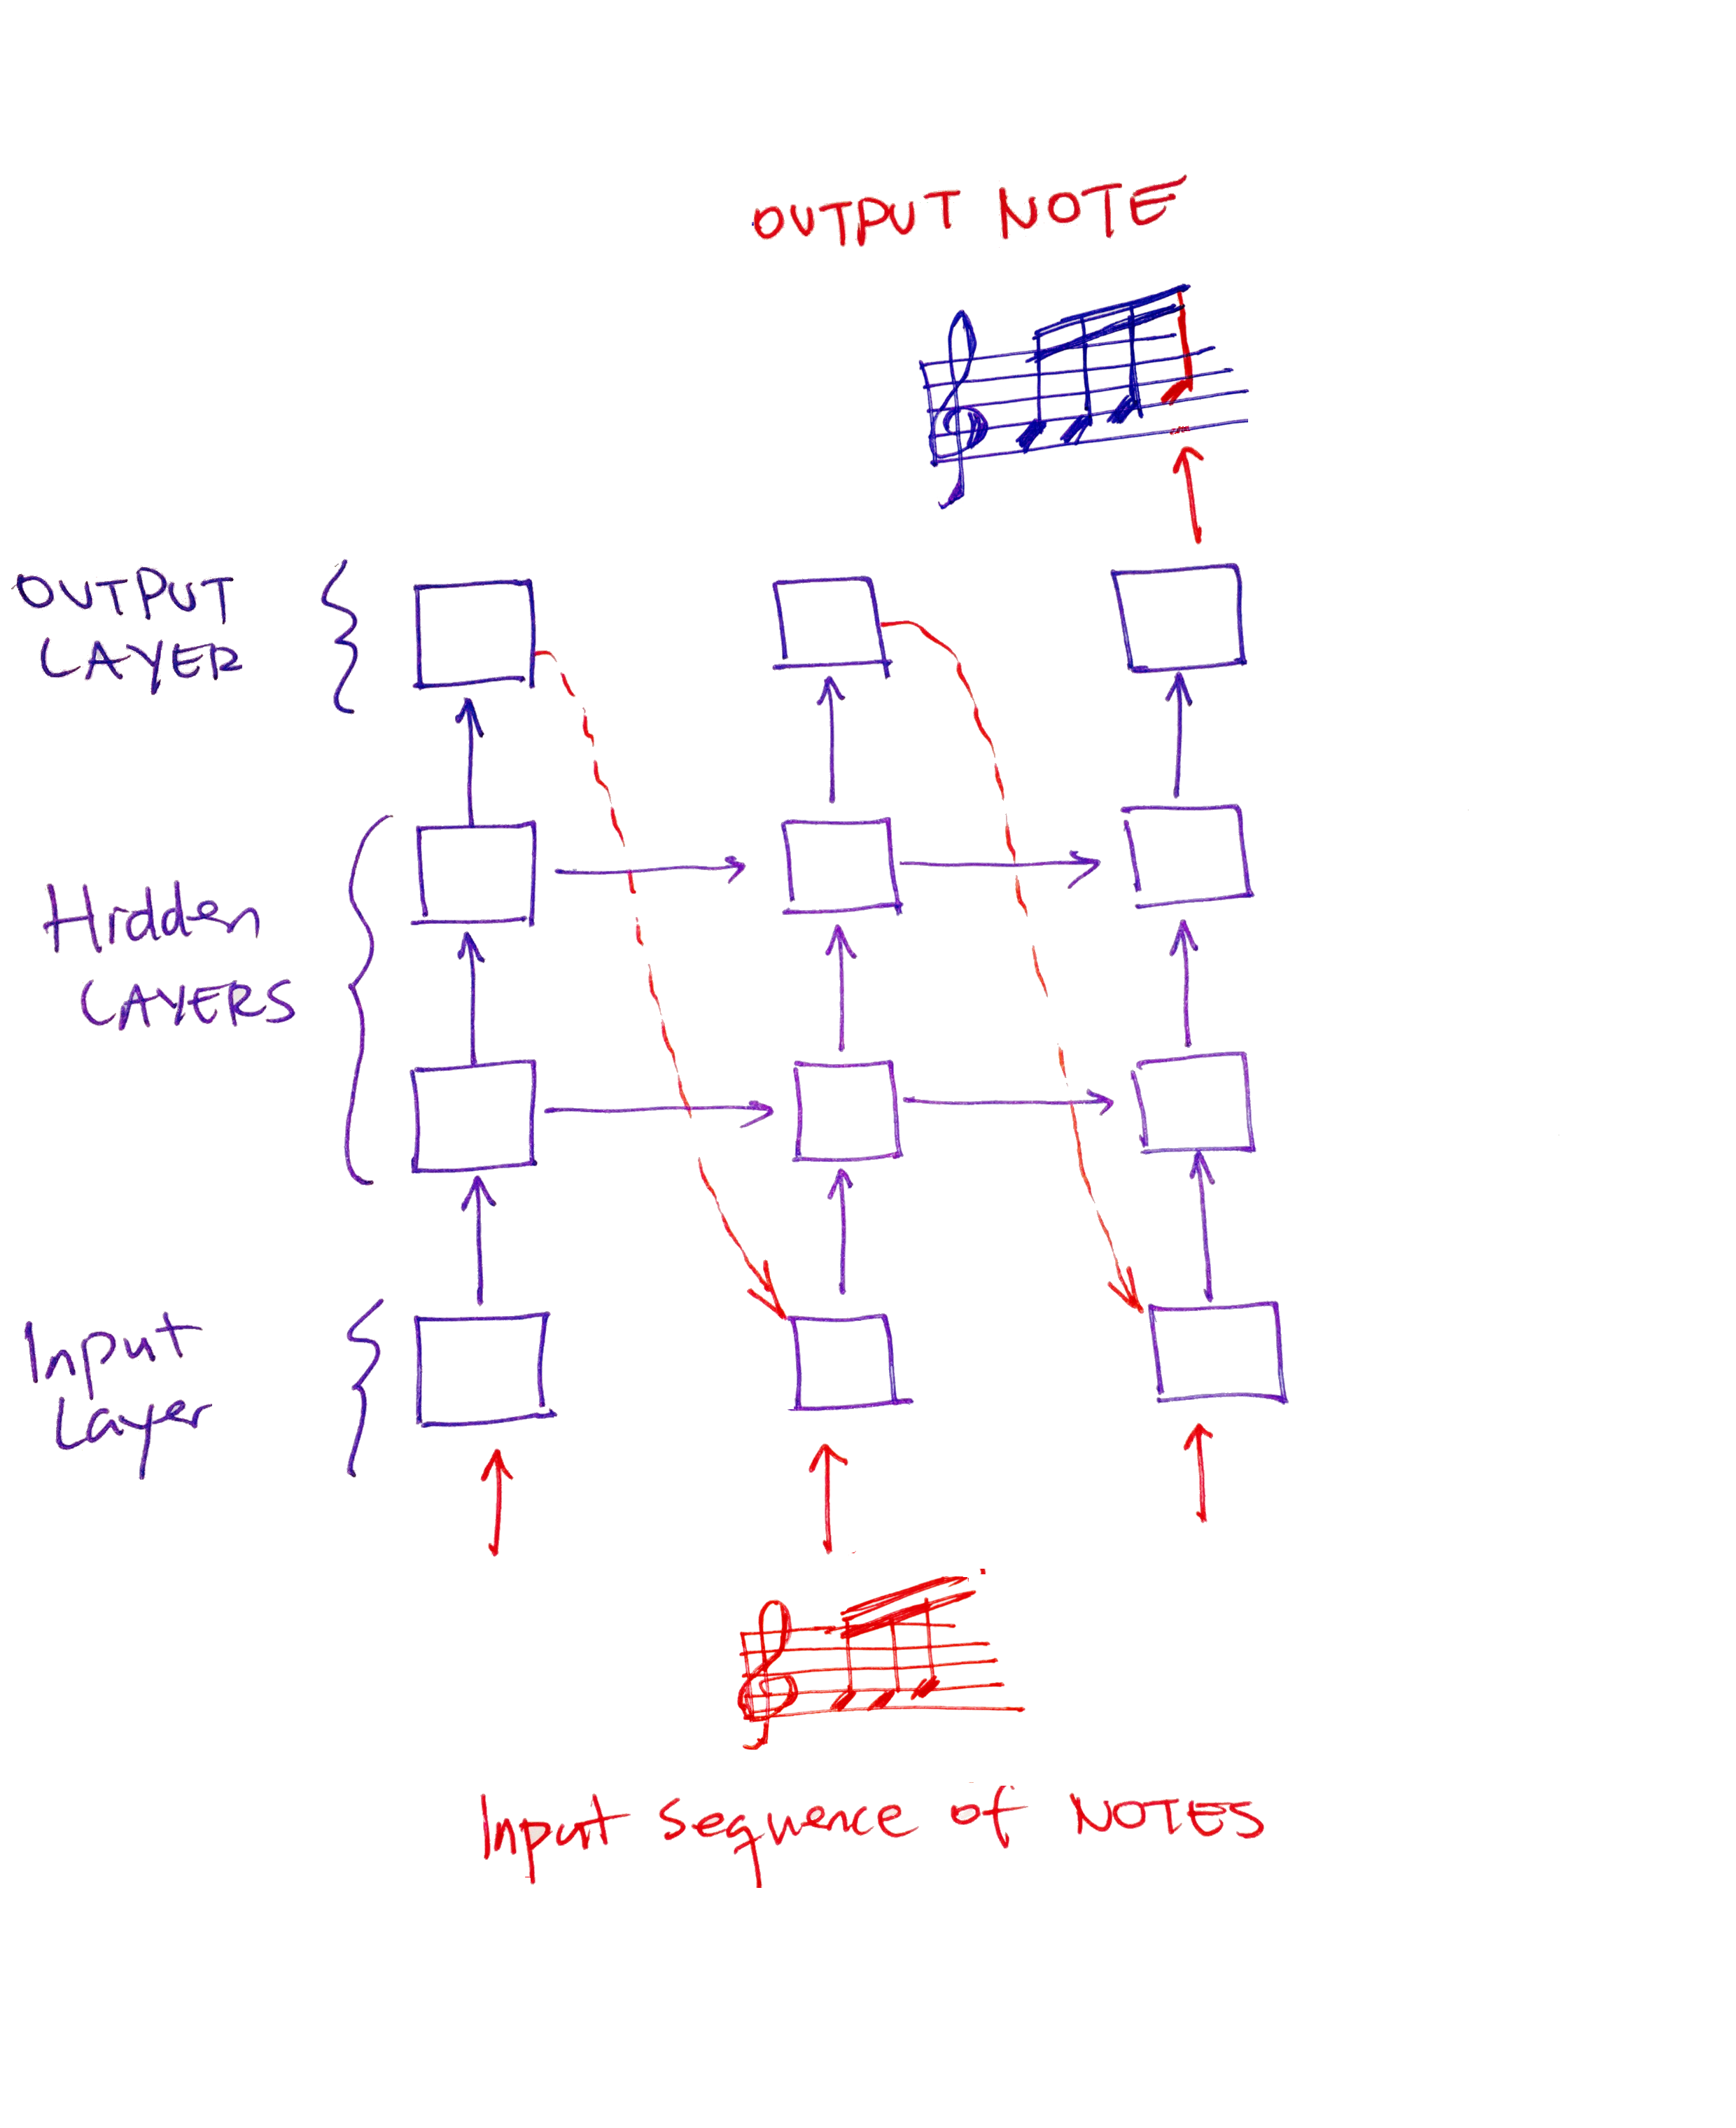 OUTPUT NOTE
OUTPUT
LAYER
Hidden
LAYERS
Input
Layer
Input Sequence of NOTES